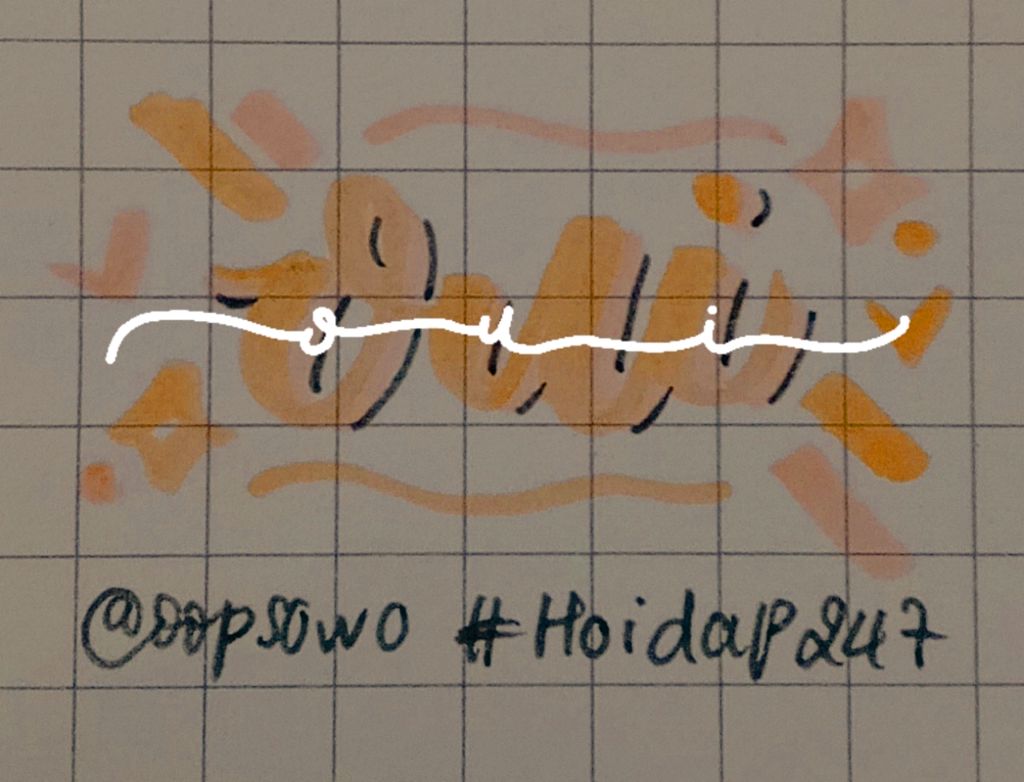 Oui
oui
@oopsowo #Hoidap247